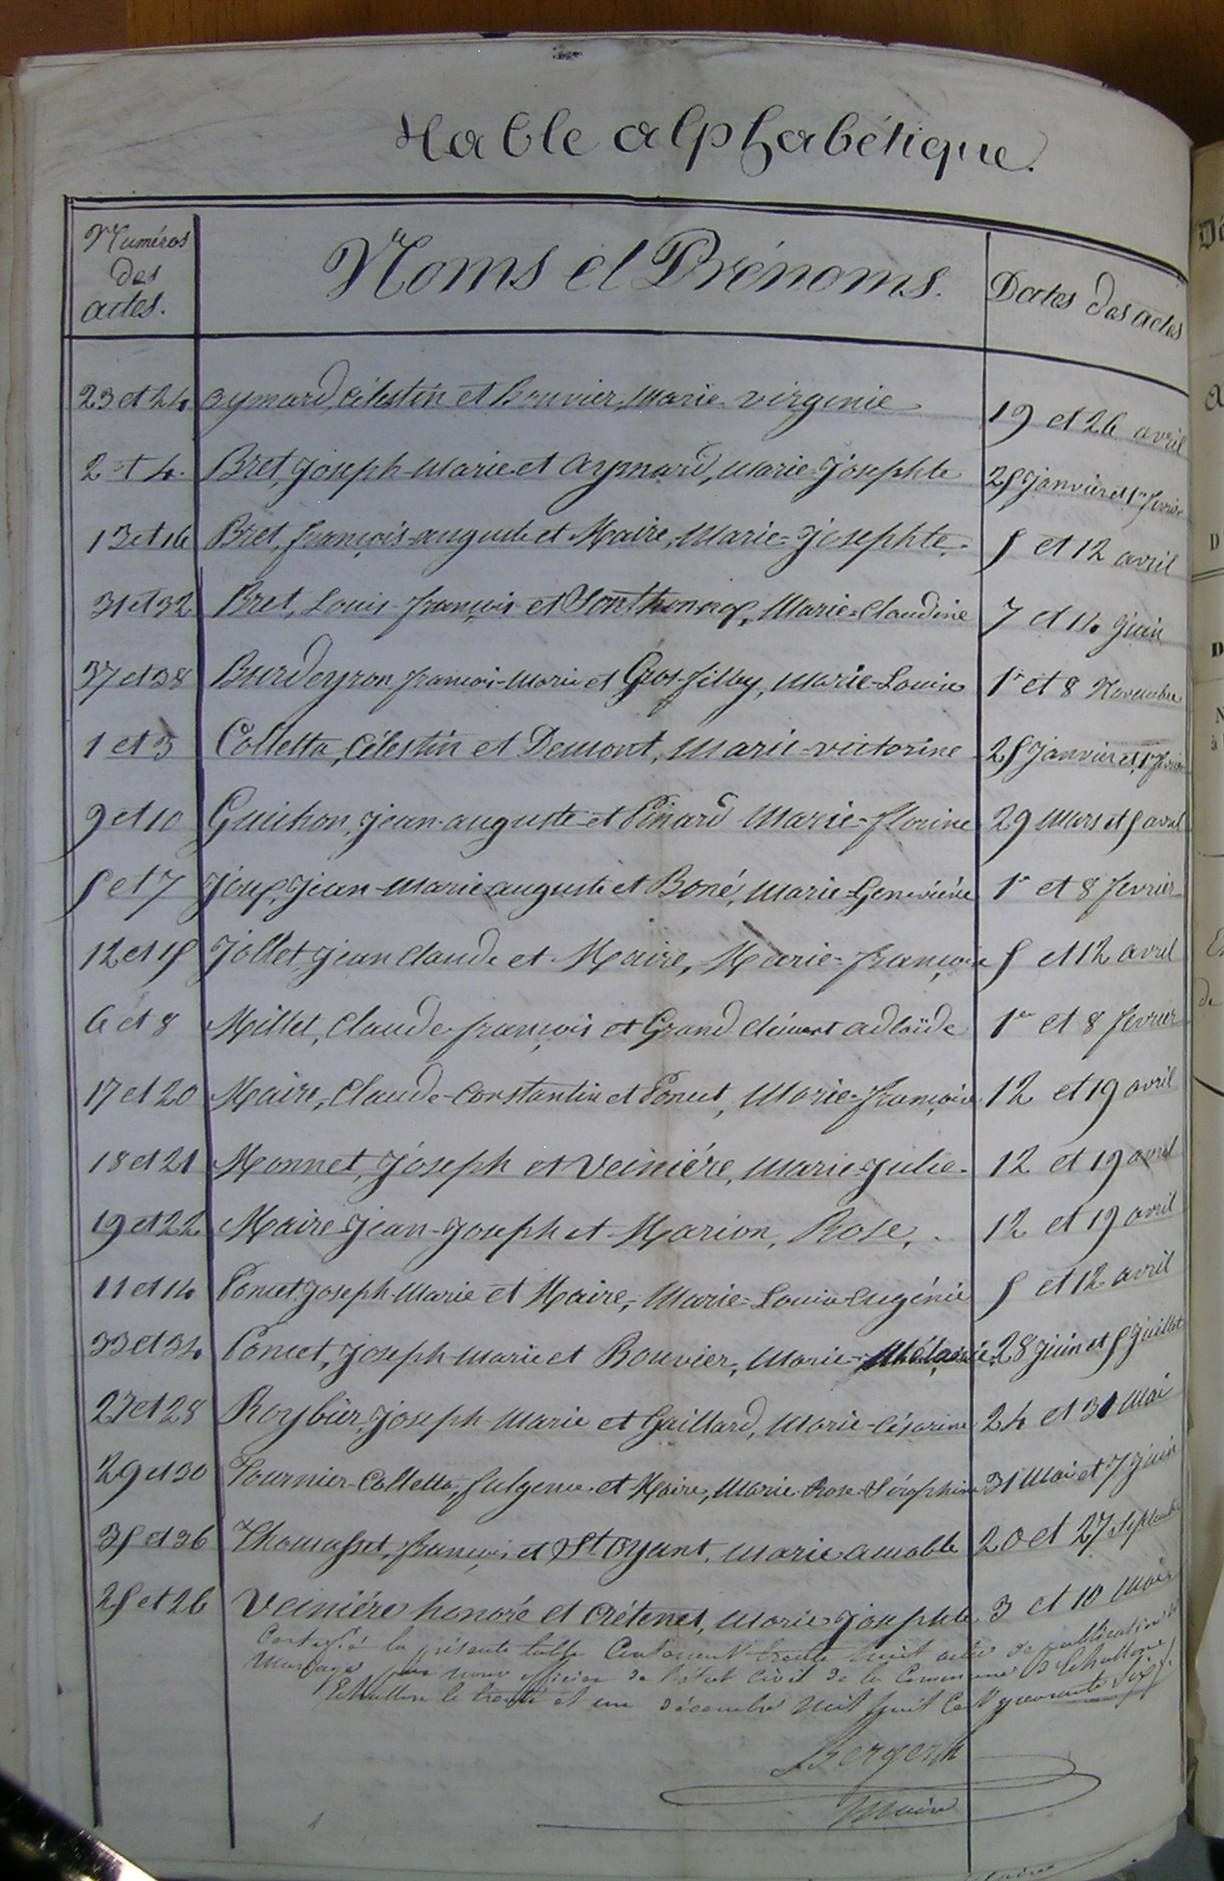 Table alphabétique.
Numéros des actes.
Noms et Prénoms.
Dates des actes
23 et 24 aymard, célestin et Bouvier, Marie virginie 19 et 26 avril
2 et 4. Bret, Joseph-Marie et Aymard, Marie-Josephte 25 Janvier et 1er fevrier
13 et 16 Bret, françois-auguste et Maire, Marie-Josephte. 5 et 12 avril
31 et 32 Bret, Louis-françois et Sonthonnax, Marie-Claudine 7 et 14 Juin
37 et 38 Burdeyron françois-Marie et Gros-filley, Marie-Louise 1er et 8 Novembre
1 et 3 Colletta, Célestin et Demont, Marie-victorine 25 Janvier et 1er fevrier
9 et 10 Guichon, Jean-auguste et Pinard Marie-florine 29 Mars et 5 avril
5 et 7 Joux, Jean-Marie auguste et Boné, Marie-Geneviève 1er et 8 fevrier
12 et 15 Jollet, Jean Claude et Maire, Marie-françoise 5 et 12 avril
6 et 8 Millet, Claude-françois et Grand clément adlaïde 1er et 8 fevrier
17 et 20 Maire, Claude-Constantin et Poncet, Marie-françoise 12 et 19 avril
18 et 21 Monnet, Joseph et Veinière, Marie-Julie. 12 et 19 avril
19 et 22 Maire Jean-Joseph et Marion, Rose, . 12 et 19 avril
11 et 14 Poncet Joseph-Marie et Maire, Marie-Louise-eugénie 5 et 12 avril
33 et 34 Poncet, Joseph-Marie et Bouvier, Marie-Mélanie. 28 Juin et 5 Juillet
27 et 28 Roybier, Joseph-Marie et Gaillard, Marie-Césarine 24 et 31 Mai
29 et 30 Tournier-Colletta, fulgence et Maire, Marie Rose-Séraphine 31 Mai et 7 Juin
35 et 36 Thomasset, françois et St Oyant, Marie amable 20 et 27 septembre
25 et 26 Veinière honoré et Crétenet, Marie Josephte 3 et 10 Mai
Certifié la présente table Contenant trente huit actes de publication de
Mariage par nous officier de l'état civil de la Commune D'Echallon
Echallon le trente et un décembre mil huit Cent quarante Six.
Maire